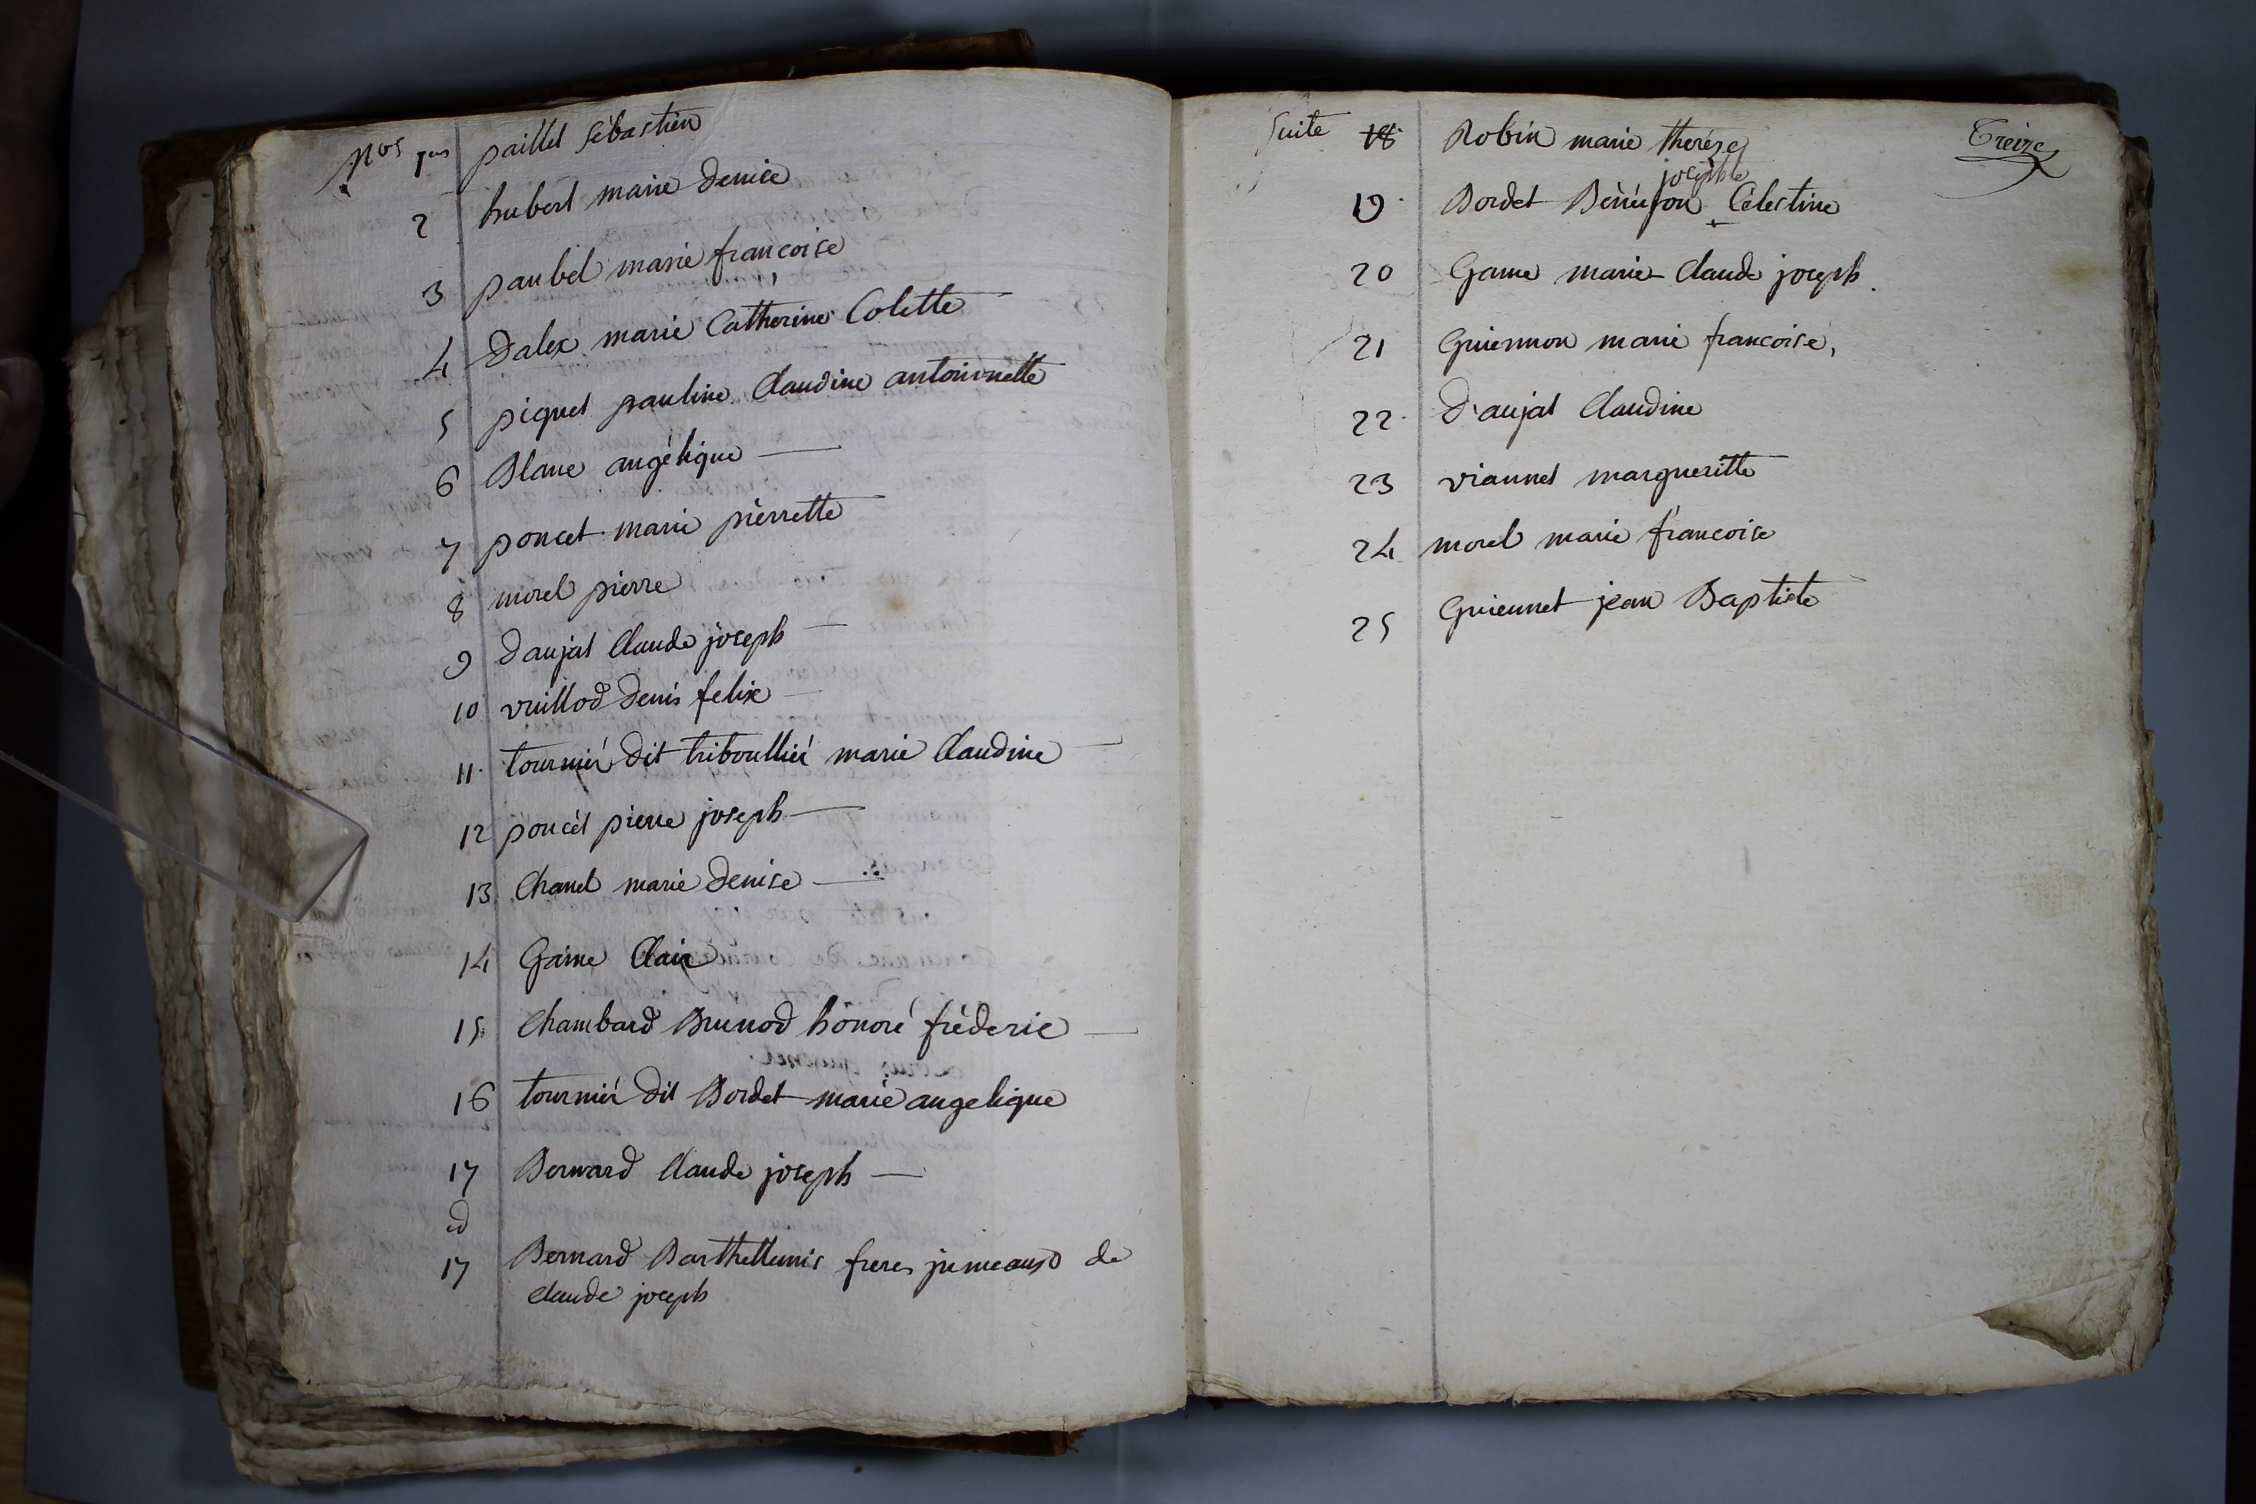 Nos 1er paillet Sébastien
2 hubert marie denise
3 paubel marie françoise
4 Dalex marie Catherine Colette
5 piquet pauline Claudine antoinette
6 Blanc angélique
7 poncet marie pierrette
8 morel pierre
9 Daujat Claude joseph
10 vuillod denis felix
11 tournier dit triboullier marie Claudine
12 poncet pierre joseph
13 Chanel marie denise
14 Game Clair
15 Chambard Brunod honoré fréderic
16 tournier dit Bordet marie angelique
17 Bernard Claude joseph
id
17 Bernard Barthellemis freres jumeaux de
claude joseph
Suite 18 Robin marie therése Treize
josephe
19 Bordet Célestine
20 Game marie Claude joseph
21 Guiennon marie francoise,
22 D'aujat Claudine
23 viannet margueritte
24 morel marie francoise
25 Guiennet jean Baptiste